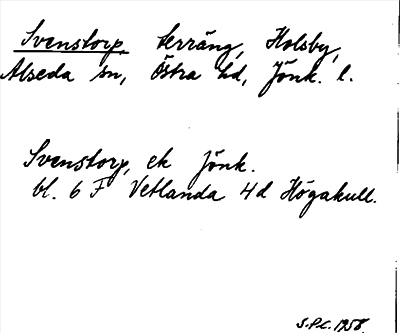 Svenstorp, terräng, Holsby,
Alseda sn, Östra hd, Jönk. l.
Svenstorp, ek Jönk.
bl. 6 F Vetlanda 4d Högakull.
S.P.C. 1958